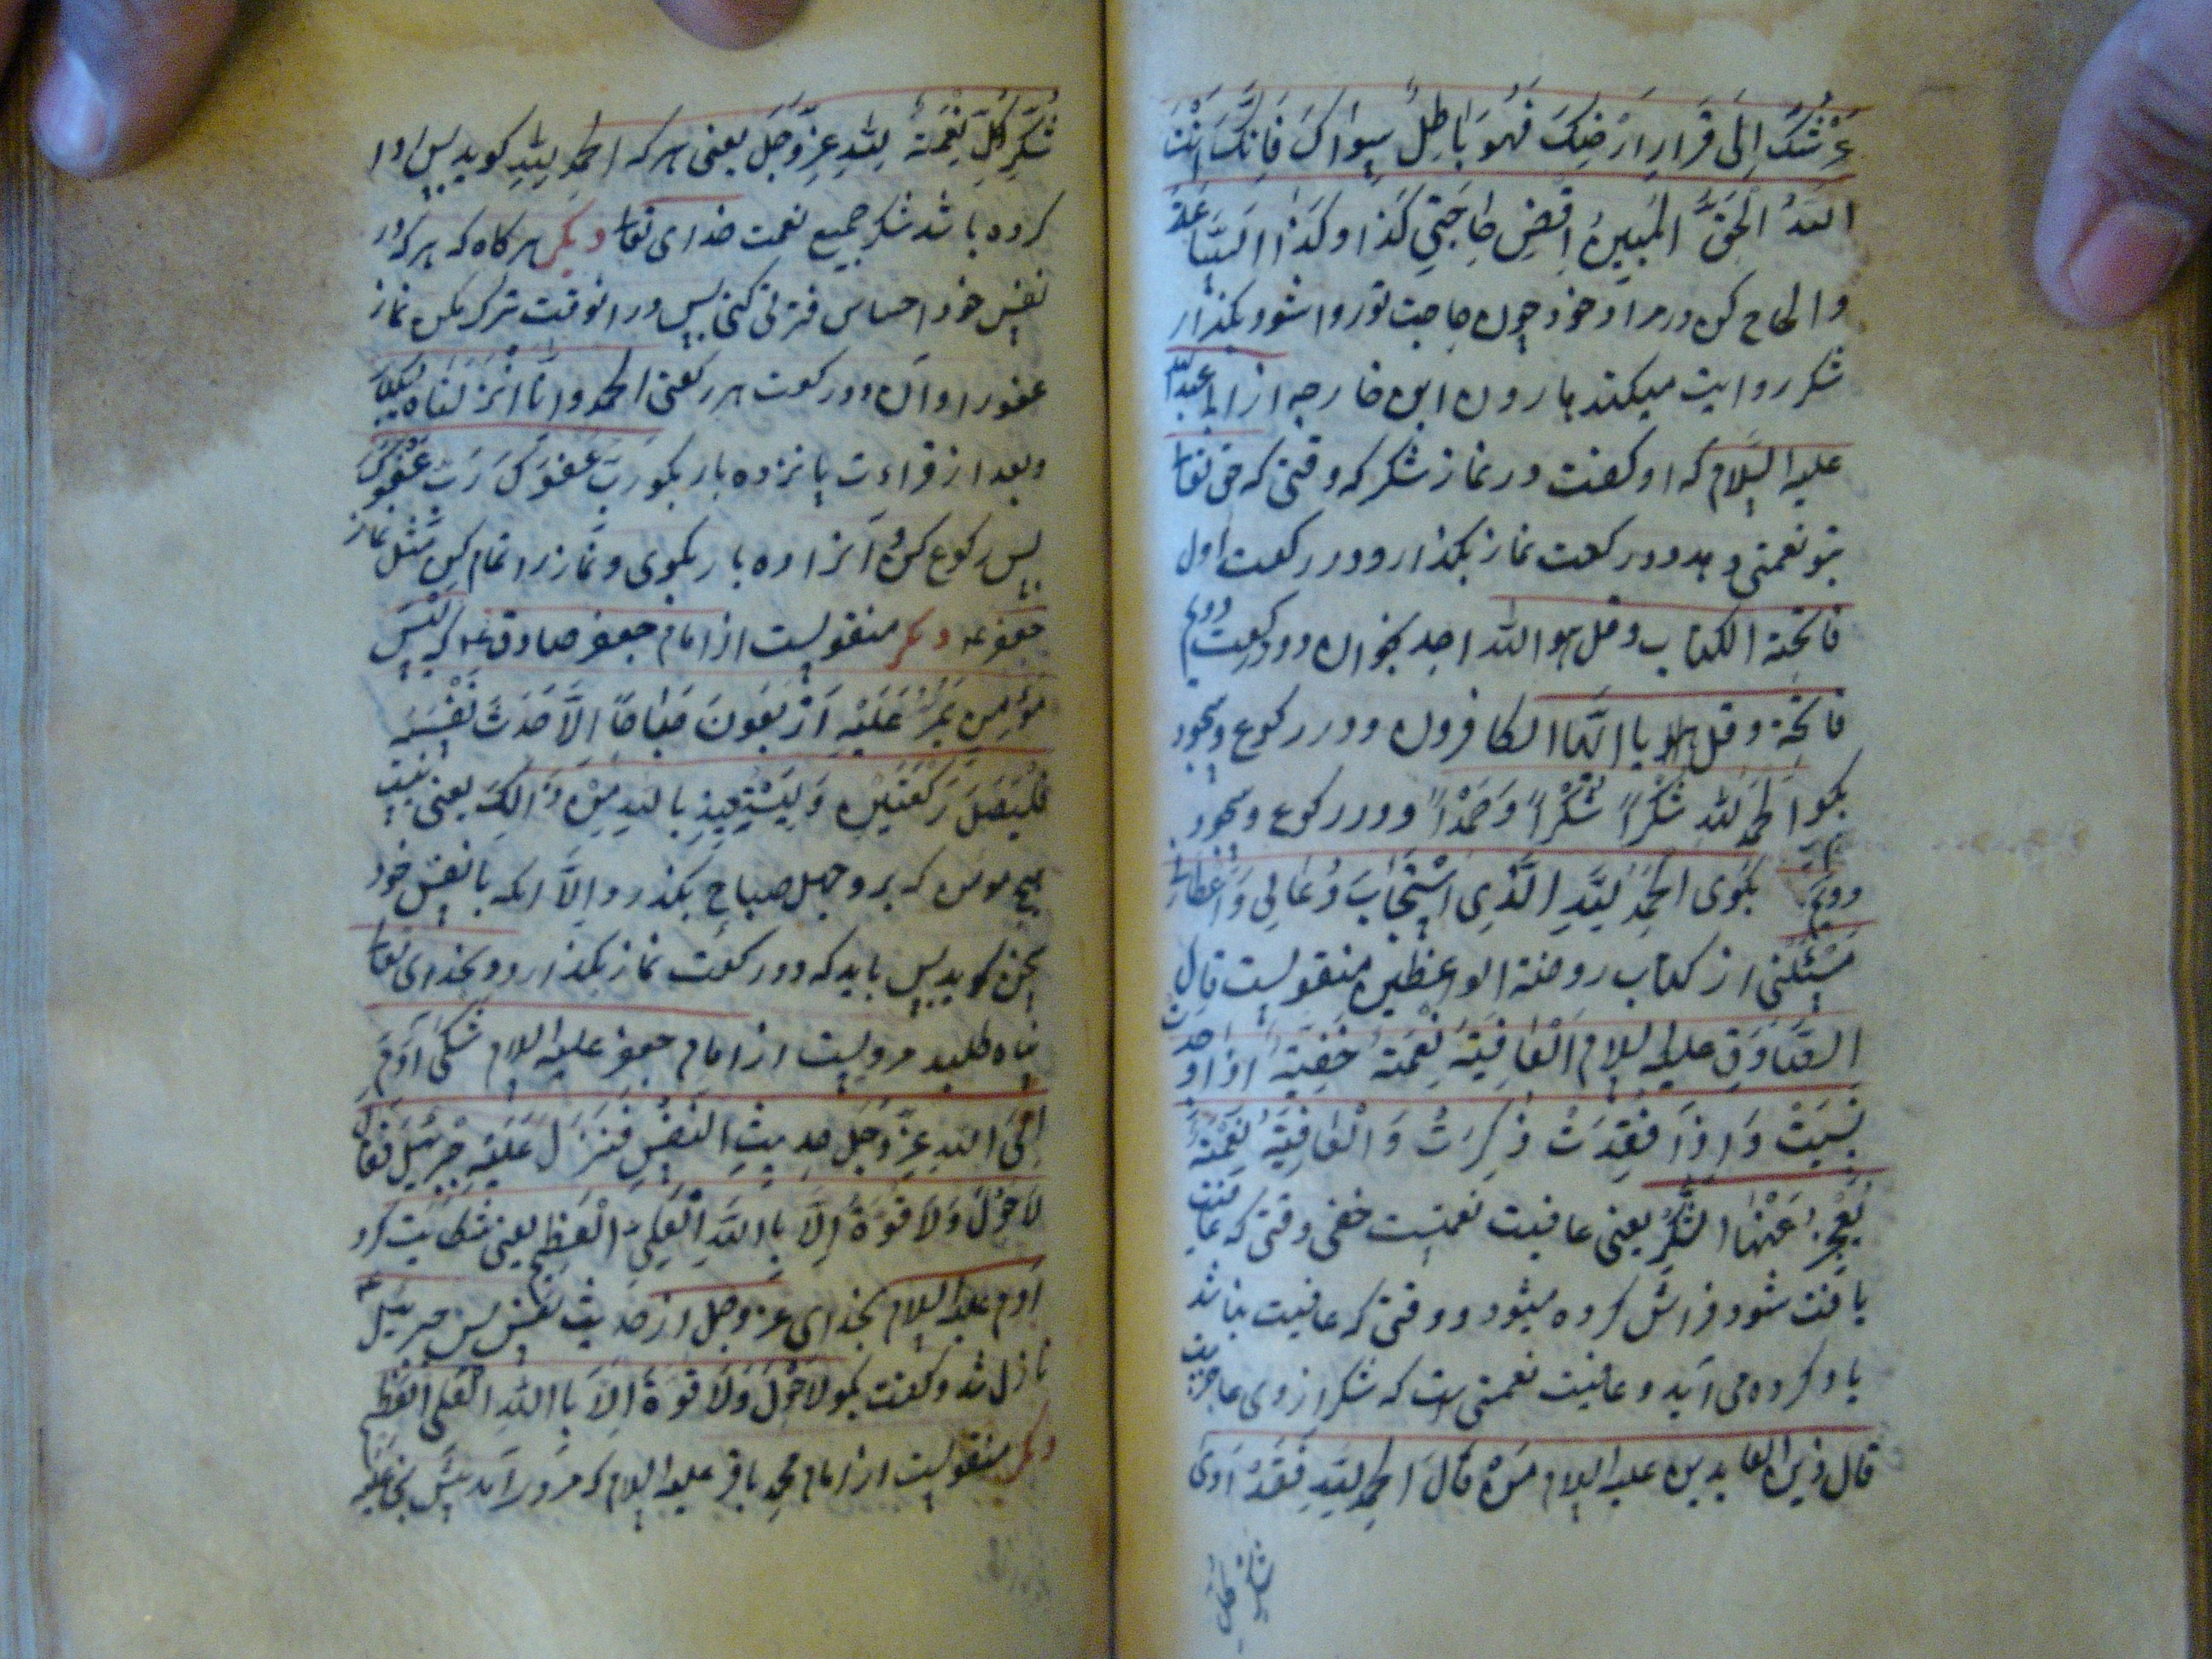 عَرْشِكَ اِلَى قَرَارِ اَرْضِكَ فَهُوَ بَاطِلٌ سِوَاكَ فَاِنَّكَ اَنْتَ
اللهُ الْحَقُّ الْمُبِينُ اِقْضِ حَاجَتِي كَذَا وَكَذَا السَّاعَةَ
والحاح کن در مراد خود چون حاجت تو روا شود بگذار
شکر روایت میکند هارون ابن خارجه از ابی عبدالله
علیه السلام که او گفت در نماز شکر که وقتی که حق تعالی
بتو نعمتی دهد دو رکعت نماز بگذار و در رکعت اول
فاتحة الکتاب و قل هو الله احد بخوان و در رکعت دویم
فاتحة و قل یا ایها الکافرون و در رکوع و سجود
بگو الحمد لله شُكْراً شُكْراً وَحَمْداً و در رکوع و سجود
دویم بگوی الْحَمْدُ لِلّهِ الَّذِي اسْتَجَابَ دُعَائِي وَاَعْطَانِي
مَسْئَلَتِي از کتاب روضة الواعظین منقولست قال
الصَّادِقُ علیه السلام الْعَافِيَةُ نِعْمَةٌ خَفِيَّةٌ اِذَا وُجِدَتْ
نُسِيَتْ وَاِذَا فُقِدَتْ ذُكِرَتْ وَالْعَافِيَةُ نِعْمَةٌ
يَعْجِزُ عَنْهَا الشُّكْرُ یعنی عافیت نعمتیست خفی وقتی که عافیت
یافت شود فراموش کرده میشود و وقتی که عافیت نباشد
یاد کرده می آید و عافیت نعمتی است که شکر از وی عاجز
قال زین العابدین علیه السلام مَنْ قَالَ الْحَمْدُ لِلّهِ فَقَدْ اَدَّى
شُكْرَ كُلِّ
شُكْرَ كُلِّ نِعْمَةٍ لِلّهِ عَزَّ وَجَلَّ یعنی هر که الحمد لله گوید پس ادا
کرده باشد شکر جمیع نعمت خدای تعالی دیگر هر گاه که در
نفس خود احساس فترتی کنی پس در انوقت ترک مکن نماز
عفو را و آن دو رکعت هر رکعتی الحمد و انا انزلناه
و بعد از قراءت پانزده بار بگو رَبِّ عَفْوَكَ رَبِّ عَفْوَكَ
پس رکوع کن و آنرا ده بار بگوی و نماز را تمام کن مثل نماز
جعفر ع دیگر منقولست از امام جعفر صادق ع که لَيْسَ
مُؤْمِنٍ يَمُرُّ عَلَيْهِ اَرْبَعُونَ صَبَاحًا اِلَّا حَدَثَ نَفْسَهُ
فَلْيُصَلِّ رَكْعَتَيْنِ وَلْيَسْتَعِيذُ بِاللهِ مِنْ ذَالِكَ یعنی نیست
هیچ مومن که برو چهل صباح بگذرد اِلَّا انکه با نفس خود
سخن گوید پس باید که دو رکعت نماز بگذارد و بخدای تعالی
پناه طلبد مرویست از امام جعفر علیه السلام شَكَى آدَمُ
اِلَى اللهِ عَزَّ وَجَلَّ حَدِيثَ النَّفْسِ فَنَزَلَ عَلَيْهِ جِبْرَئِيلُ فَقَالَ
لَا حَوْلَ وَلَا قُوَّةَ اِلَّا بِاللهِ الْعَلِيِّ الْعَظِيمِ یعنی شکایت کرد
آدم علیه السلام بخدای عز و جل از حدیث نفس پس جبرئیل
نازل شد و گفت بگو لَا حَوْلَ وَلَا قُوَّةَ اِلَّا بِاللهِ الْعَلِيِّ الْعَظِيمِ
دیگر منقولست از امام محمد باقر علیه السلام که مردی آمد پیش